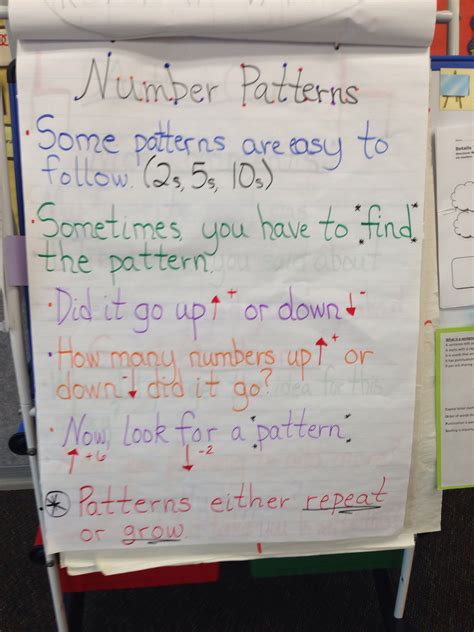 Number Patterns
• Some patterns are easy to
follow. (2s, 5s, 10s)
• Sometimes you have to *find*
the pattern.
• Did it go up ↑ + or down ↓ -
• How many numbers up ↑ + or
down - ↓ did it go?
• Now, look for a *pattern*.
↑ +6 ↓ -2
* Patterns either repeat
or grow.
Details